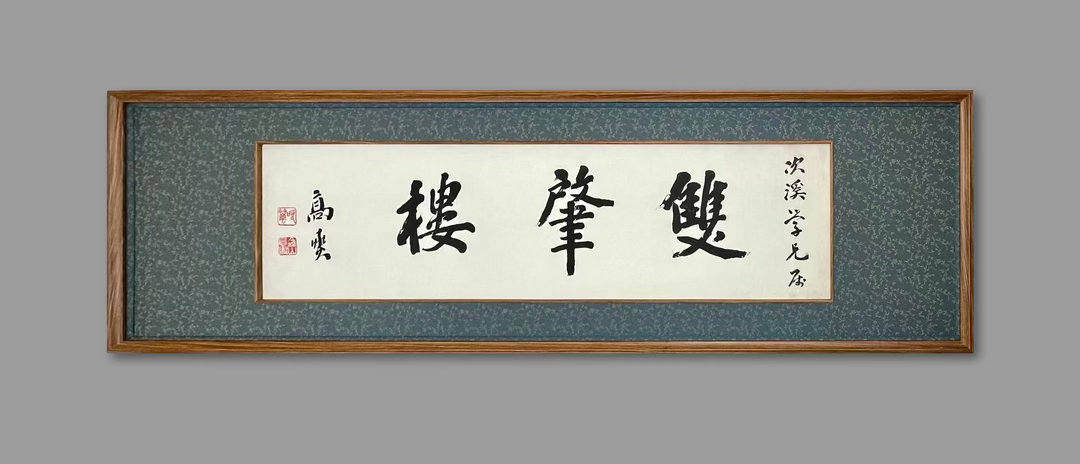 次溪学兄属
雙肇樓
高